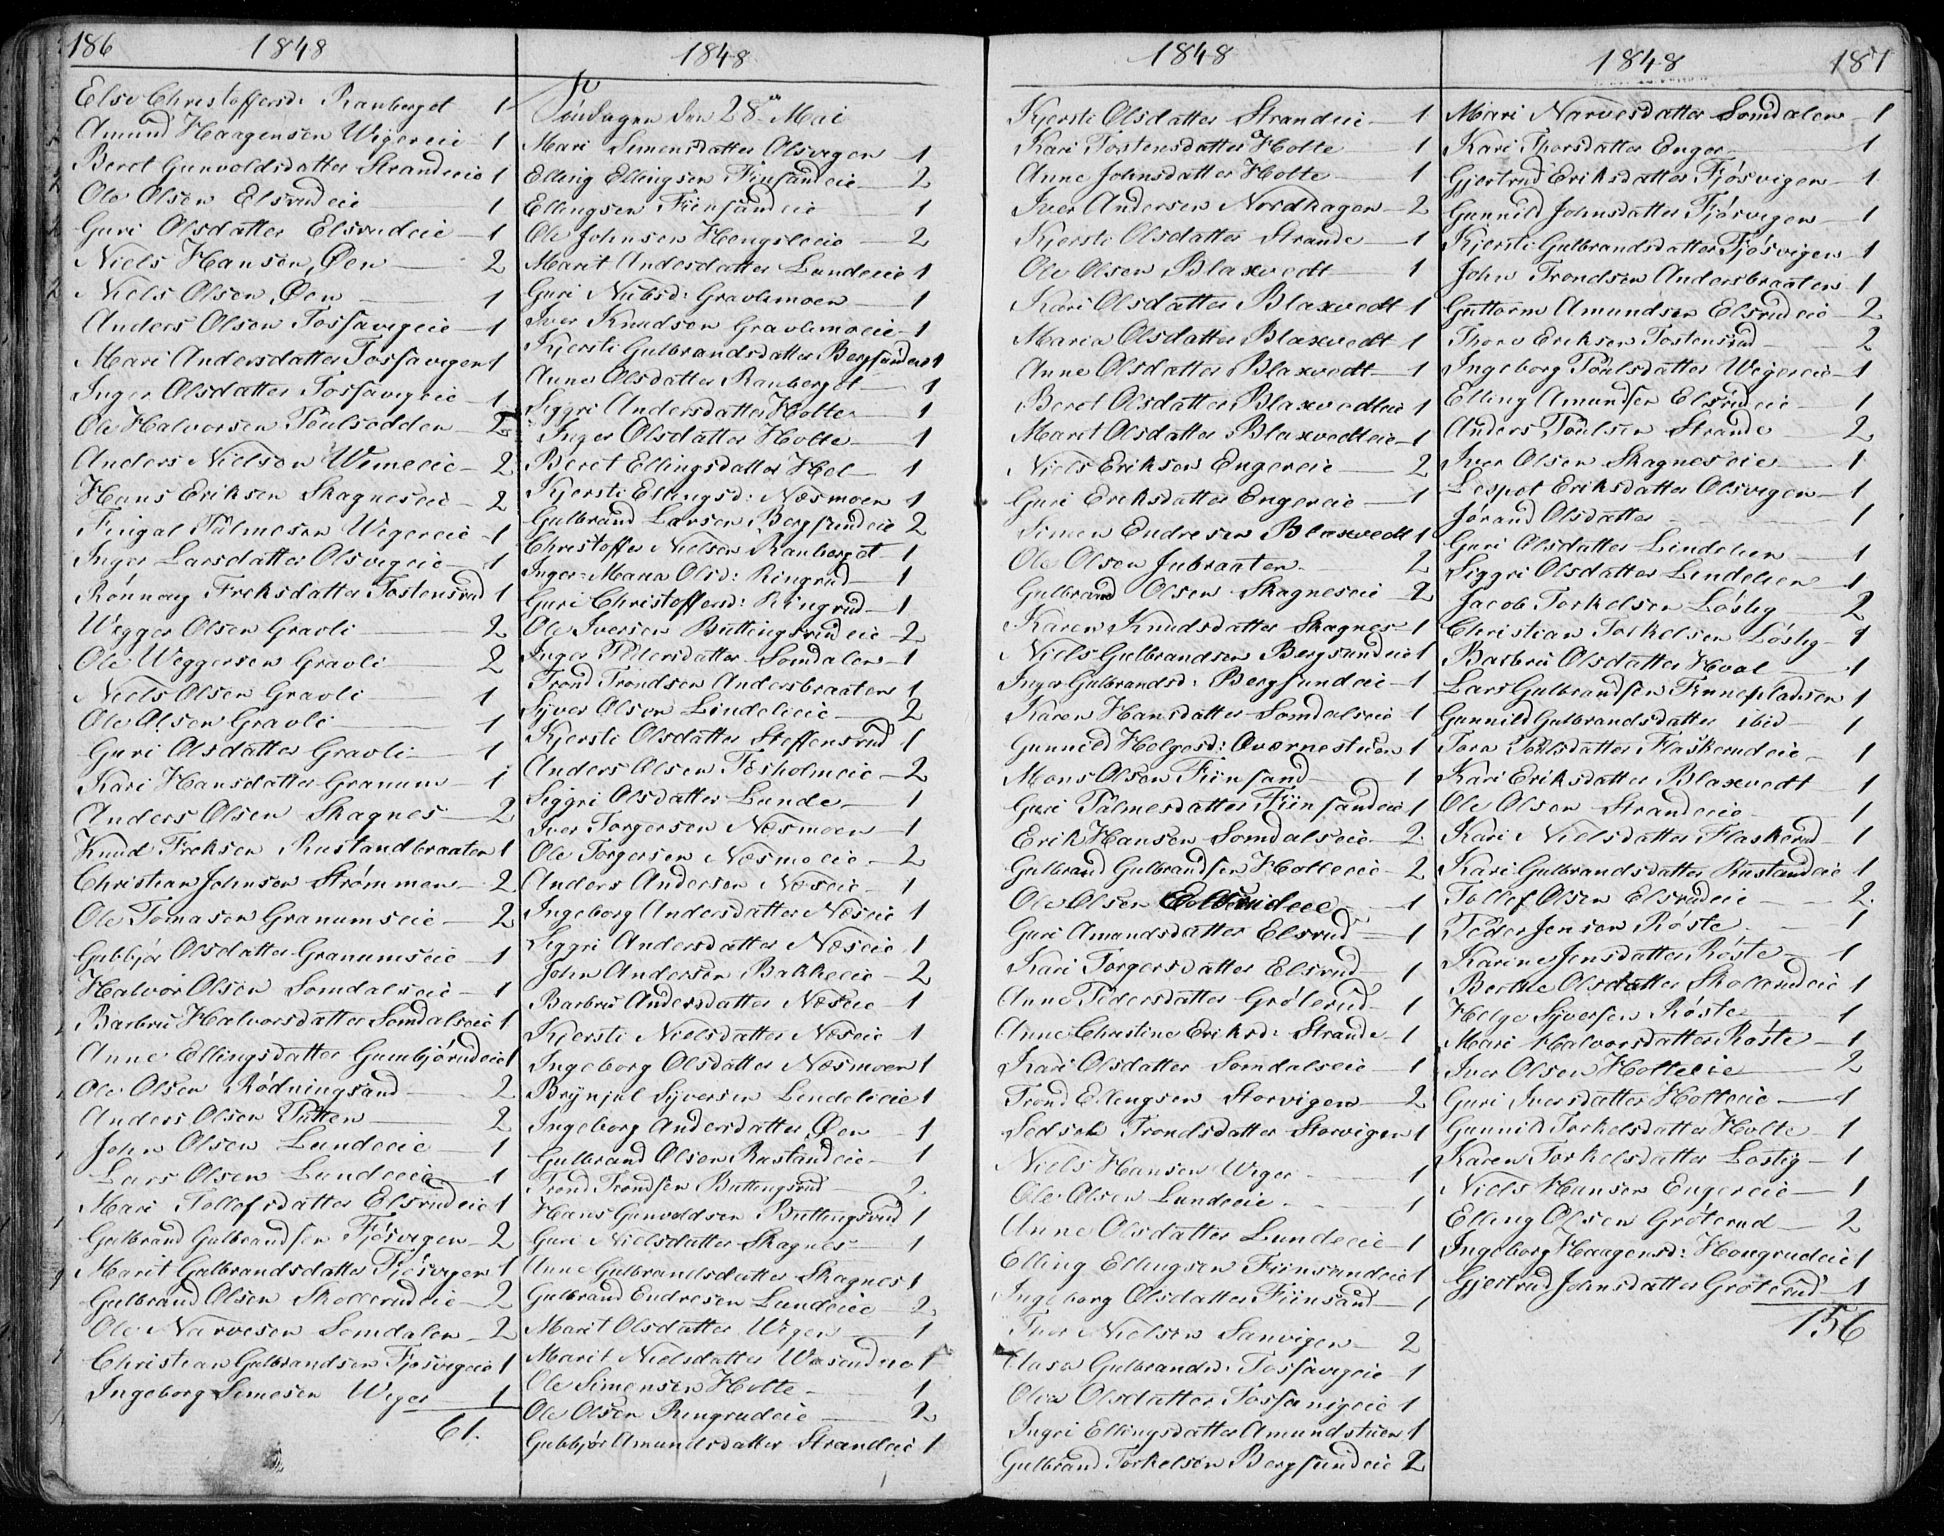 186 1848
Else Christoffersd: Ranberget 1
Amund Haagensen Wigereie 1
Beret Gunvoldsdatter Strandeeie 1
Ole Olsen Elsrudeie 1
Guri Olsdatter Elsrudeie 1
Niels Hansen Øen 2
Niels Olsen Øen 1
Anders Olsen Fossavigeie 1
Mari Andersdatter Fossavigen 1
Inger Olsdatter Fossavigeie 1
Ole Halvorsen Poulsodden 2
Anders Nielsen Wemeeie 2
Hans Eriksen Skagneseie 2
Fingal Palmesen Wigereie 1
Inger Larsdatter Olsvigeie 1
Rønnaug Freksdatter Tostensrud 1
Wegger Olsen Gravli 2
Ole Weggersen Gravli 2
Niels Olsen Gravli 1
Ole Olsen Gravli 1
Guri Olsdatter Gravli 1
Kari Hansdatter Granum 1
Anders Olsen Skagnes 2
Knud Freksen Rustandbraaten 1
Christian Johnsen Strømmen 2
Ole Tomasen Granumseie 2
Gubbjør Olsdatter Granumseie 1
Halvor Olsen Somdalseie 1
Barbru Halvorsdatter Somdalseie 1
Anne Ellingsdatter Gunbjørudeie 1
Ole Olsen Rødningsand 2
Anders Olsen Putten 2
John Olsen Lundeeie 1
Lars Olsen Lundeeie 1
Mari Tollefsdatter Elsrudeie 1
Gulbrand Gulbrandsen Fjøsvigen 2
Marit Gulbrandsdatter Fjøsvigen 1
Gulbrand Olsen Skollerudeie 2
Ole Narvesen Somdalen 2
Christian Gulbrandsen Fjøsvigeie 1
Ingeborg Simesen Weger 1
61.
1848
Søndagen den 28de Mai
Mari Simensdatter Olsvigen 1
Elling Ellingsen Fiinsandeie 2
Ellingsen Fiinsandeie 1
Ole Johnsen Hengsleeie 2
Marit Andersdatter Lundeeie 1
Guri Nubsd: Gravlimoen 1
Iver Knudsen Gravlimoeie 1
Kjersti Gulbrandsdatter Bergsundeie 1
Anne Olsdatter Ranberget 1
Siggri Andersdatter Holte 1
Inger Olsdatter Holte 1
Beret Ellingsdatter Hol 1
Kjersti Ellingsd: Næsmoen 1
Gulbrand Larsen Bergsundeie 2
Christoffer Nielsen Ranberget 1
Inger-Maria Olsd: Ringrud 1
Guri Christoffersd: Ringrud 1
Ole Iversen Buttingsrudeie 2
Inger Pedersdatter Somdalen 1
Trond Trondsen Andersbraaten 1
Syver Olson Lindelieie 2
Kjersti Olsdatter Steffensrud 1
Anders Olsen Fosholmeie 2
Siggri Olsdatter Lunde 1
Iver Torgersen Næsmoen 1
Ole Torgersen Næsmoeie 2
Anders Andersen Næseie 1
Ingeborg Andersdatter Næseie 1
Siggri Andersdatter Næseie 1
John Andersen Bakkeeie 2
Barbru Andersdatter Næseie 1
Kjersti Nielsdatter Næseie 1
Ingeborg Olsdatter Næsmoen 1
Brynjul Syversen Lindelieie 1
Ingeborg Andersdatter Øen 1
Gulbrand Olsen Rustandeie 1
Trond Trondsen Buttingsrud 2
Hans Gunvoldsen Buttingsrud 1
Guri Nielsdatter Skagnes 1
Anne Gulbrandsdatter Skagnes 1
Gulbrand Endresen Lundeeie 2
Marit Olsdatter Weger 1
Marit Nielsdatter 1
Ole Simensen Holte 1
Ole Olsen Ringrudeie 2
Gubbjør Amundsdatter Strandeie 1
1848
Kjersti Olsdatter Strandeie 1
Kari Tostensdatter Holte 1
Anne Johnsdatter Holte 1
Iver Andersen Nordhagen 2
Kjersti Olsdatter Strande 1
Ole Olsen Blaxvedt 1
Kari Olsdatter Blaxvedt 1
Maria Olsdatter Blaxvedt 1
Anne Olsdatter Blaxvedt 1
Beret Olsdatter Blaxvedteie 1
Marit Olsdatter Blaxvedteie 1
Niels Eriksen Engereie 2
Guri Eriksdatter Engereie 1
Simen Endresen Blaxvedt 1
Ole Olsen Jubraaten 2
Gulbrand Olsen Skagneseie 2
Karen Knudsdatter Skagnes 1
Niels Gulbrandsen Bergsundeie 1
Inger Gulbrandsd: Bergsundeie 1
Karen Hansdatter Somdalseie 1
Gunnild Helgesd: Qværnestuen 1
Mons Olsen Fiinsand 1
Guri Palmesdatter Fiinsandeie 1
Erik Hansen Somdalseie 2
Gulbrand Gulbrandsen Holteeie 2
Ole Olsen Elsrudeie 1
Guri Amundsdatter Elsrud 1
Kari Torgersdatter Elsrud 1
Anne Pedersdatter Grøterud 1
Anne Christine Eriksd: Strande 1
Kari Olsdatter Somdalseie 1
Trond Ellingsen Storvigen 2
Sedsel Trondsdatter Storvigen 1
Niels Hansen Weger 1
Ole Olsen Lundeeie 1
Anne Olsdatter Lundeeie 1
Elling Ellingsen Fiinsandeie 1
Ingeborg Olsdatter Fiinsand 1
Iver Nielsen Sanvigen 2
Aase Gulbrandsd: Fossavigeie 1
Olea Olsdatter Fossavigeie 1
Ingri Ellingsdatter Amundstuen 1
Gulbrand Torkelsen Bergsundeie 2
1848 187
Mari Narvesdatter Somdalen 1
Kari Thorsdatter Enger 1
Gjertrud Eriksdatter Fjøsvigen 1
Gunnild Johnsdatter Fjøsvigen 1
Kjersti Gulbrandsdatter Fjøsvigen 1
John Trondsen Andersbraaten 1
Guttorm Amundsen Elsrudeie 2
Thore Eriksen Tostensrud 2
Ingeborg Poulsdatter Wegereie 1
Elling Amundsen Elsrudeie 1
Anders Poulsen Strande 2
Iver Olsen Skagneseie 1
Lespet Eriksdatter Olsvigen 1
Jørand Olsdatter 1
Guri Olsdatter Lindelien 1
Siggri Olsdatter Lindelien 1
Jacob Torkelsen Løslig 2
Christian Torkelsen Løslig 1
Barbru Olsdatter Hval 1
Lars Gulbrandsen Finnepladsen 1
Gunnild Gulbrandsdatter ibid 1
Torn Polsdatter Flaskerudeie 1
Kari Eriksdatter Blaxvedt 1
Ole Olsen Strandeeie 1
Kari Nielsdatter Flaskerud 1
Kari Gulbrandsdatter Rustandeie 1
Tollef Olsen Elsrudeie 2
Peder Jensen Røste 1
Karine Jensdatter Røste 1
Berthe Olsdatter Skollerudeie 1
Helge Syversen Røste 1
Mari Halvorsdatter Røste 1
Iver Olsen Holteeie 2
Guri Iversdatter Holteeie 1
Gunnild Torkelsdatter Holte 1
Karen Torkelsdatter Løslig 1
Niels Hansen Engereie 1
Elling Olsen Grøterud 2
Ingeborg Haagensd: Haugrudeie 1
Gjertrud Johnsdatter Grøterud 1
156